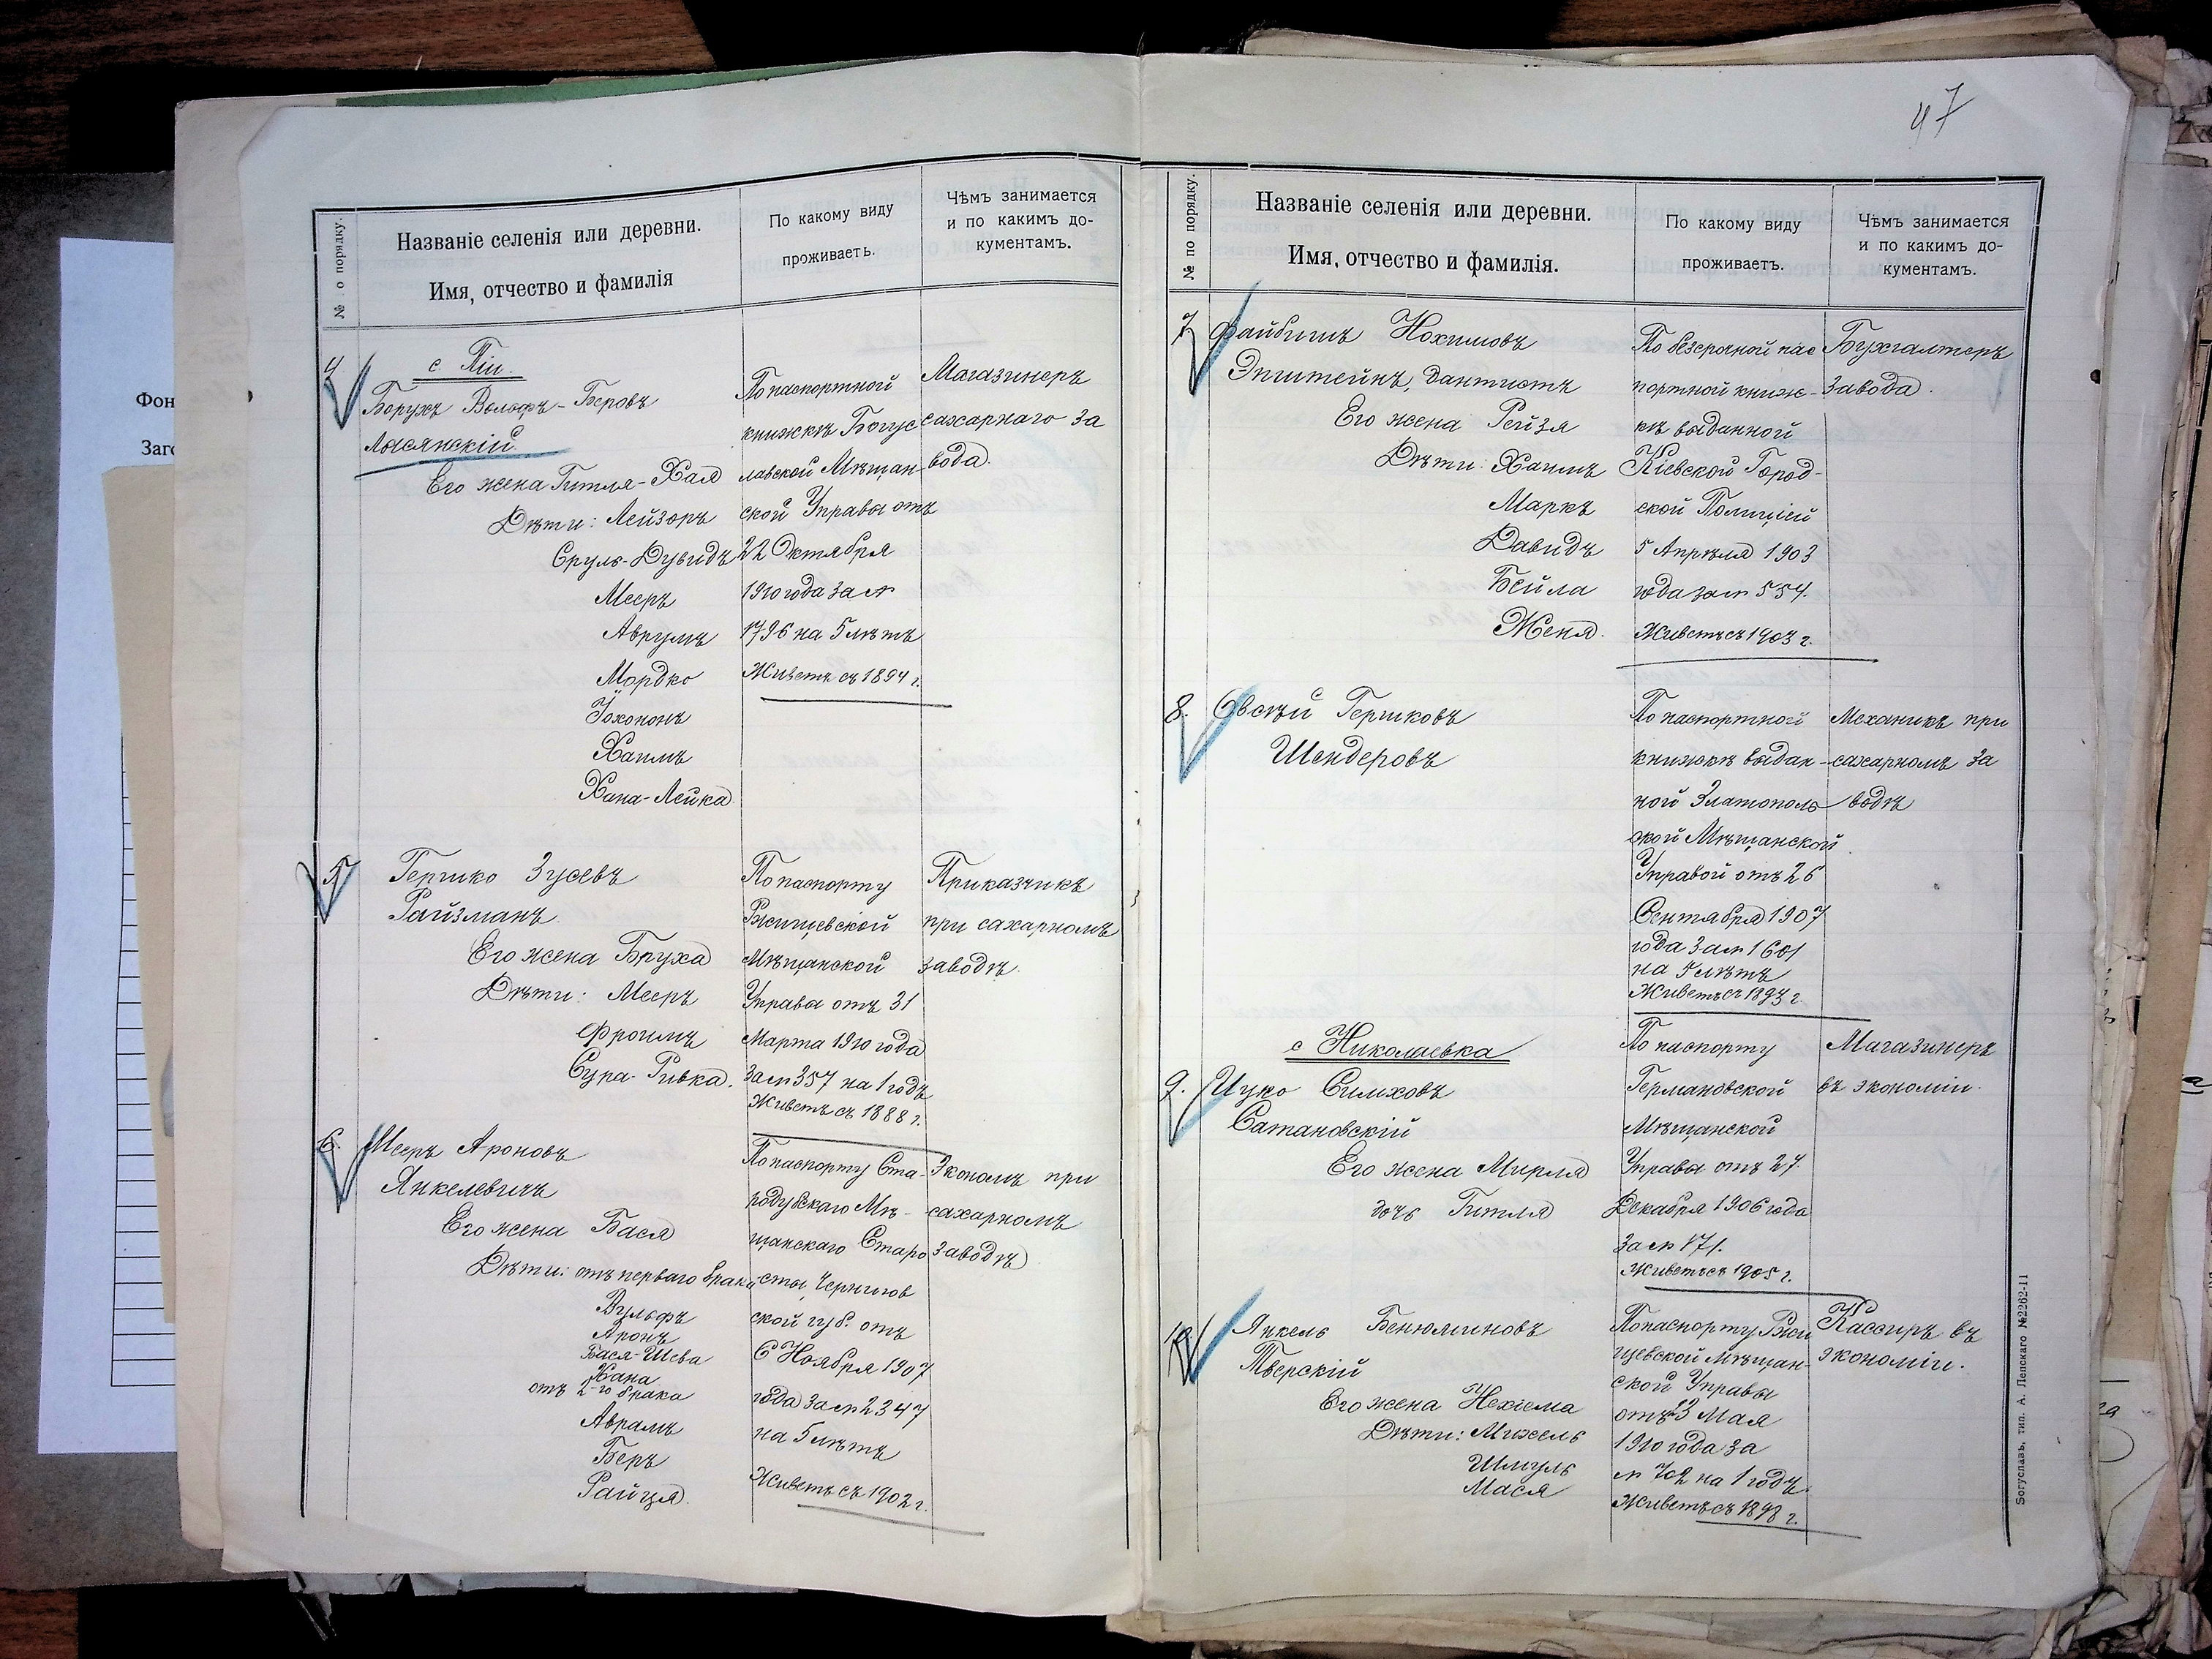 47
Фон
Заго
№ о порядку.
Названіе селенія или деревни.
Имя, отчество и фамилія
По какому виду
проживаетъ.
Чѣмъ занимается
и по какимъ до-
кументамъ.
4
с Піи.
Борухъ Вольфъ-Беровъ
Лысянскій
Его жена Гитля-Хая
Дѣти: Лейзоръ
Сруль-Дувидъ
Мееръ
Аврумъ
Мордко
Іохононъ
Хаимъ
Хана-Лейка
По паспортной
книжкѣ Богус
лавской Мѣщан
ской Управы отъ
22 Октября
1910 года за №
1796 на 5 лѣтъ
Живетъ съ 1894 г.
Магазинеръ
сахарнаго за
вода.
5
Гершко Зусевъ
Райзманъ
Его жена Бруха
Дѣти: Мееръ
Фроимъ
Сура-Ривка.
По паспорту
Ржищевской
Мѣщанской
Управы отъ 31
Марта 1910 года
за № 357 на 1 годъ
Живетъ съ 1888 г.
Приказчикъ
при сахарномъ
заводѣ.
6.
Мееръ Ароновъ
Янкелевичъ
Его жена Бася
Дѣти: отъ перваго брака
Вульфъ
Аронъ
Бася-Шева
Хана
отъ 2-го брака
Аврамъ
Беръ
Райця.
По паспорту Ста-
родубскаго Мѣ-
щанскаго Старо
сты, Чернигов
ской губ. отъ
6 Ноября 1907
года за № 2347
на 5 лѣтъ
Живетъ съ 1902 г.
Экономъ при
сахарномъ
заводѣ
№ по порядку.
Названіе селенія или деревни.
Имя, отчество и фамилія.
По какому виду
проживаетъ.
Чѣмъ занимается
и по какимъ до-
кументамъ.
7.
Файбишъ Нохимовъ
Эпштейнъ, дантистъ
Его жена Рейзя
Дѣти: Хаимъ
Маркъ
Давидъ
Бейла
Женя.
По безсрочной пас
портной книж-
кѣ выданной
Кіевской Город-
ской Полиціей
5 Апрѣля 1903
года за № 554.
Живетъ съ 1903 г.
Бухгалтеръ
завода.
8.
Овсѣй Гершковъ
Шендеровъ
По паспортной
книжкѣ выдан-
ной Златополь
ской Мѣщанской
Управой отъ 26
Сентября 1907
года за № 1601
на 5 лѣтъ
Живетъ съ 1893 г.
Механикъ при
сахарномъ за
водѣ
с Николаевка
9.
Ицко Симховъ
Сатановскій
Его жена Мирля
дочь Гитля
По паспорту
Германовской
Мѣщанской
Управы отъ 27
Декабря 1906 года
за № 171.
Живетъ съ 1905 г.
Магазинеръ
въ экономіи.
10.
Янкель Бенюминовъ
Тверскій
Его жена Нехіема
Дѣти: Михель
Шмуль
Мася
По паспорту Ржи
щевской мѣщан-
ской Управы
отъ 23 Мая
1910 года за
№ 702 на 1 годъ.
Живетъ съ 1898 г.
Кассиръ въ
экономіи.
Богуславъ, тип. А. Лепскаго №2262-11